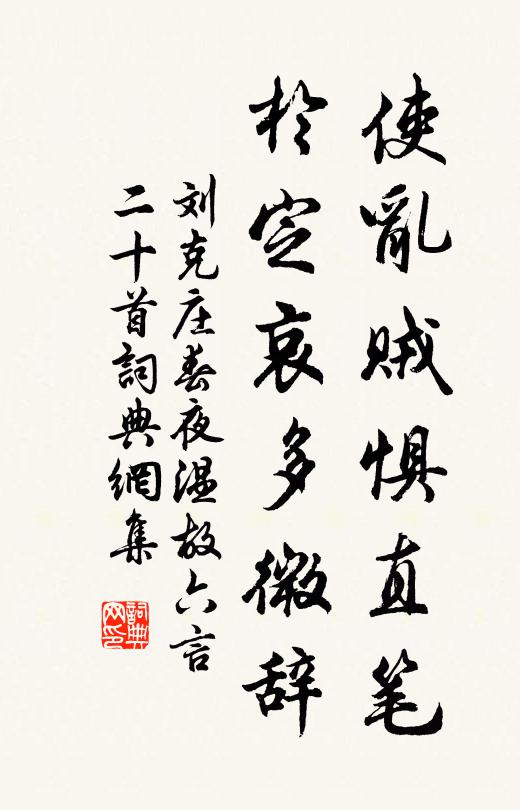 使亂贼惧直笔
於定哀多微辞
刘克庄春夜温故六言
二十首詞典網集
詞典網印